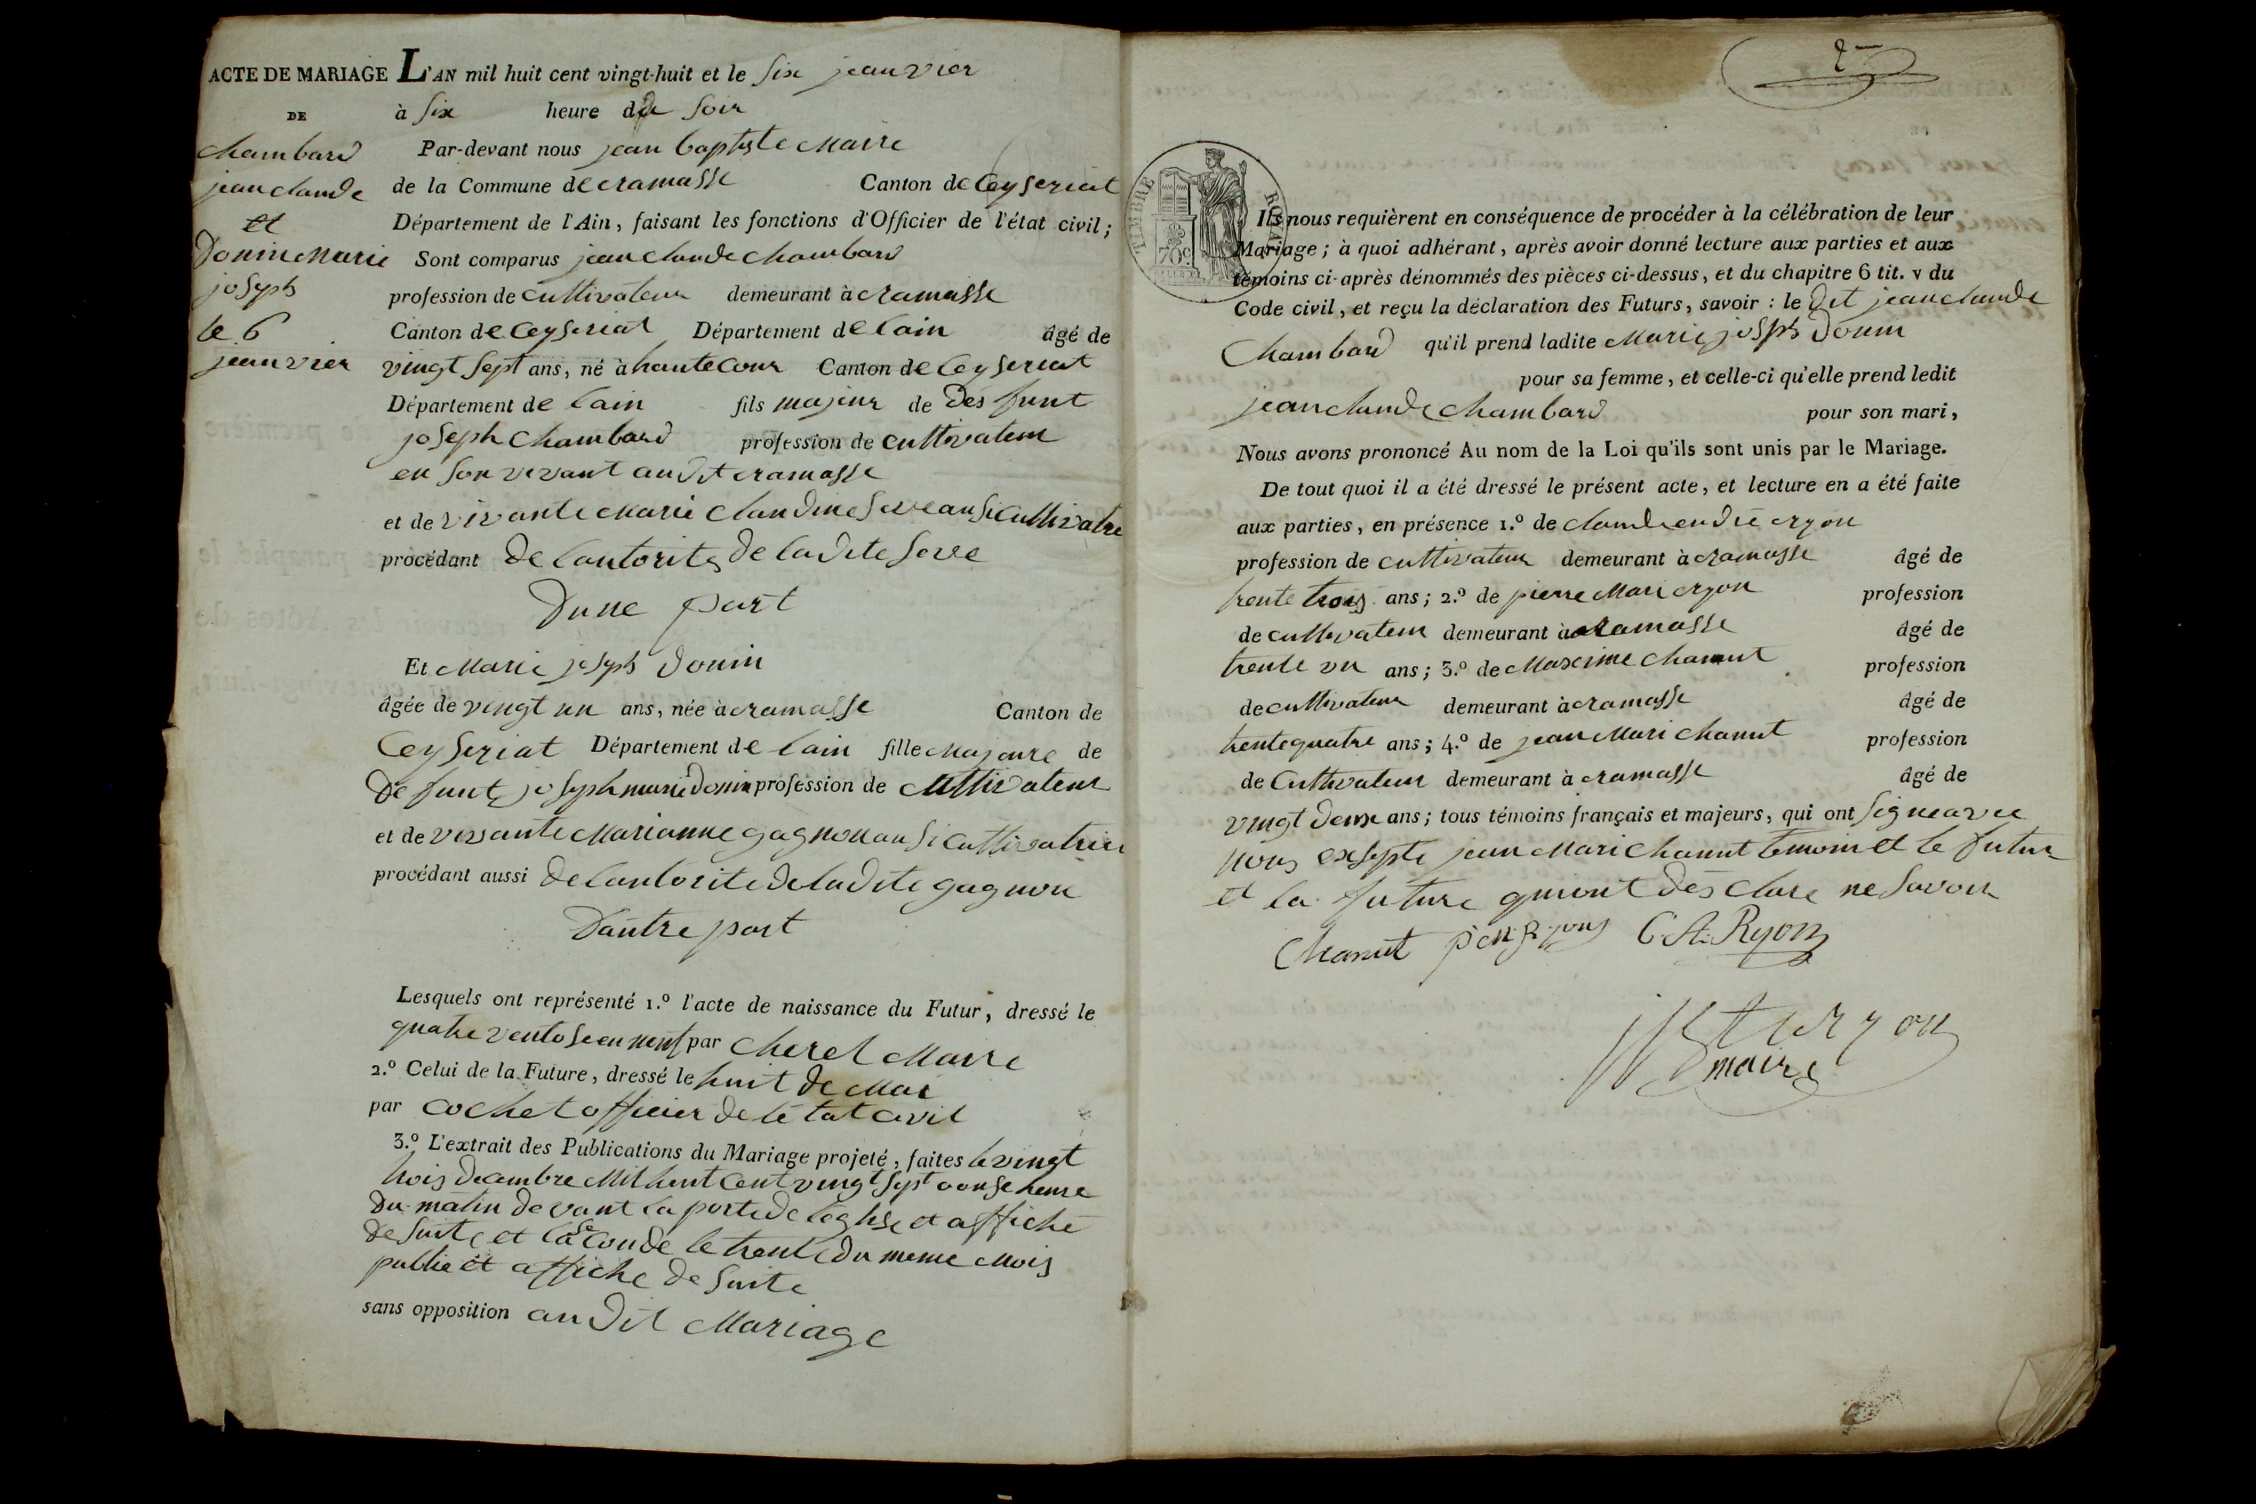 ACTE DE MARIAGE L'AN mil huit cent vingt-huit et le six jeanvier
DE
à six heure du soir
chambard
Par-devant nous jean baptiste Maire
jean claude
de la Commune de cramasse Canton de Ceyseriat
et
Département de l'Ain, faisant les fonctions d'Officier de l'état civil;
Donin Marie
Sont comparus jean claude chambard
joseph
profession de cultivateur demeurant à cramasse
le 6
Canton de Ceyseriat Département de lain âgé de
jeanvier
vingt sept ans, né à hautecour Canton de Ceyseriat
Département de lain fils majeur de des funt
joseph chambard profession de cultivateur
en son vivant audit cramasse
et de vivante Marie claudine seve ausi cultivatre
procédant de lautorite de ladite seve
Dune part
Et Marie joseph Donin
âgée de vingt un ans, née à cramasse Canton de
Ceyseriat Département de lain fille Majeure de
De funt joseph marie Donin profession de cultivateur
et de vivante Marianne gagnon ausi cultivatrice
procédant aussi de lautorite de ladite gagnon
Dautre part
Lesquels ont représenté 1.º l'acte de naissance du Futur, dressé le
quatre ventose en neuf par cherel Maire
2.º Celui de la Future, dressé le huit de Mai
par cochet officier de lé tat civil
3.º L'extrait des Publications du Mariage projeté, faites le vingt
trois decembre Mil huit cent vingt sept a onse heure
Du matin devant la porte de léglise et affiché
De suite et la seconde le trente du meme Mois
publié et affiché de suite
sans opposition au dit Mariage
2
TIMBRE ROYAL
70c
Ils nous requièrent en conséquence de procéder à la célébration de leur
Mariage; à quoi adhérant, après avoir donné lecture aux parties et aux
témoins ci-après dénommés des pièces ci-dessus, et du chapitre 6 tit. v du
Code civil, et reçu la déclaration des Futurs, savoir : le dit jean claude
Chambard qu'il prend ladite Marie joseph Donin
pour sa femme, et celle-ci qu'elle prend ledit
jean claude chambard pour son mari,
Nous avons prononcé Au nom de la Loi qu'ils sont unis par le Mariage.
De tout quoi il a été dressé le présent acte, et lecture en a été faite
aux parties, en présence 1.º de claude endré eryon
profession de cultivateur demeurant à cramasse âgé de
trente trois ans; 2.º de pierre Mari eryon profession
de cultivateur demeurant à cramasse âgé de
trente un ans; 3.º de Maxime chanut profession
de cultivateur demeurant à cramasse âgé de
trente quatre ans; 4.º de jean Mari chanut profession
de Cultivateur demeurant à cramasse âgé de
vingt deux ans; tous témoins français et majeurs, qui ont signe avec
nous exsepte jean Mari chanut temoin et le futur
et la future qui ont dés clare ne savoir
Chanut C. A. Ryon
maire